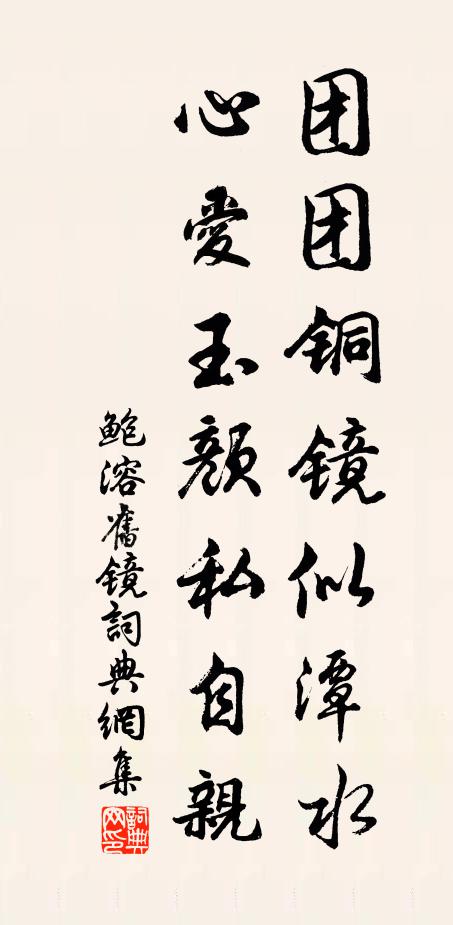 团团铜镜似潭水
心愛玉颜私自親
鲍溶舊镜詞典網集
詞典網印